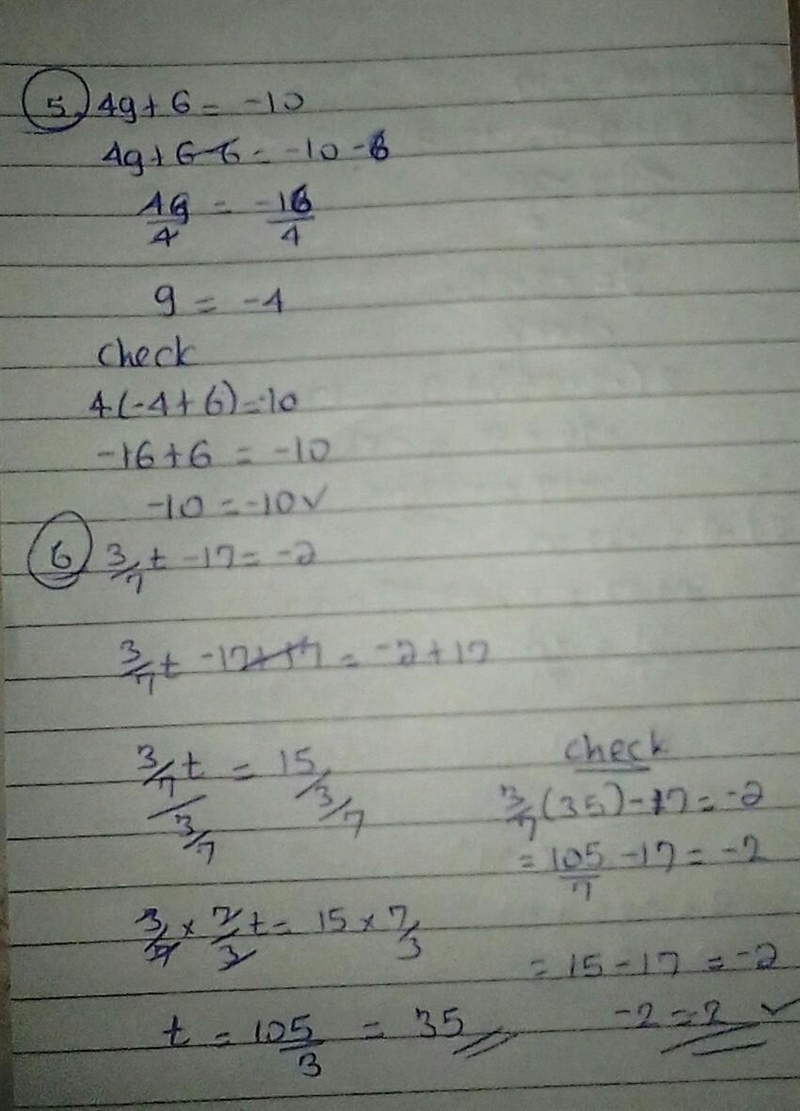 5. 4g + 6 = -10
4g + 6 - 6 = -10 - 6
4g/4 = -16/4
g = -4
Check
4(-4 + 6) = -10
-16 + 6 = -10
-10 = -10 ✓
6 3/7 t - 17 = -2
3/7 t - 17 + 17 = -2 + 17
3/7 t / 3/7 = 15 / 3/7
3/7 × 7/3 t = 15 × 7/3
t = 105/3 = 35
check
3/7 (35) - 17 = -2
= 105/7 - 17 = -2
= 15 - 17 = -2
-2 = 2 ✓